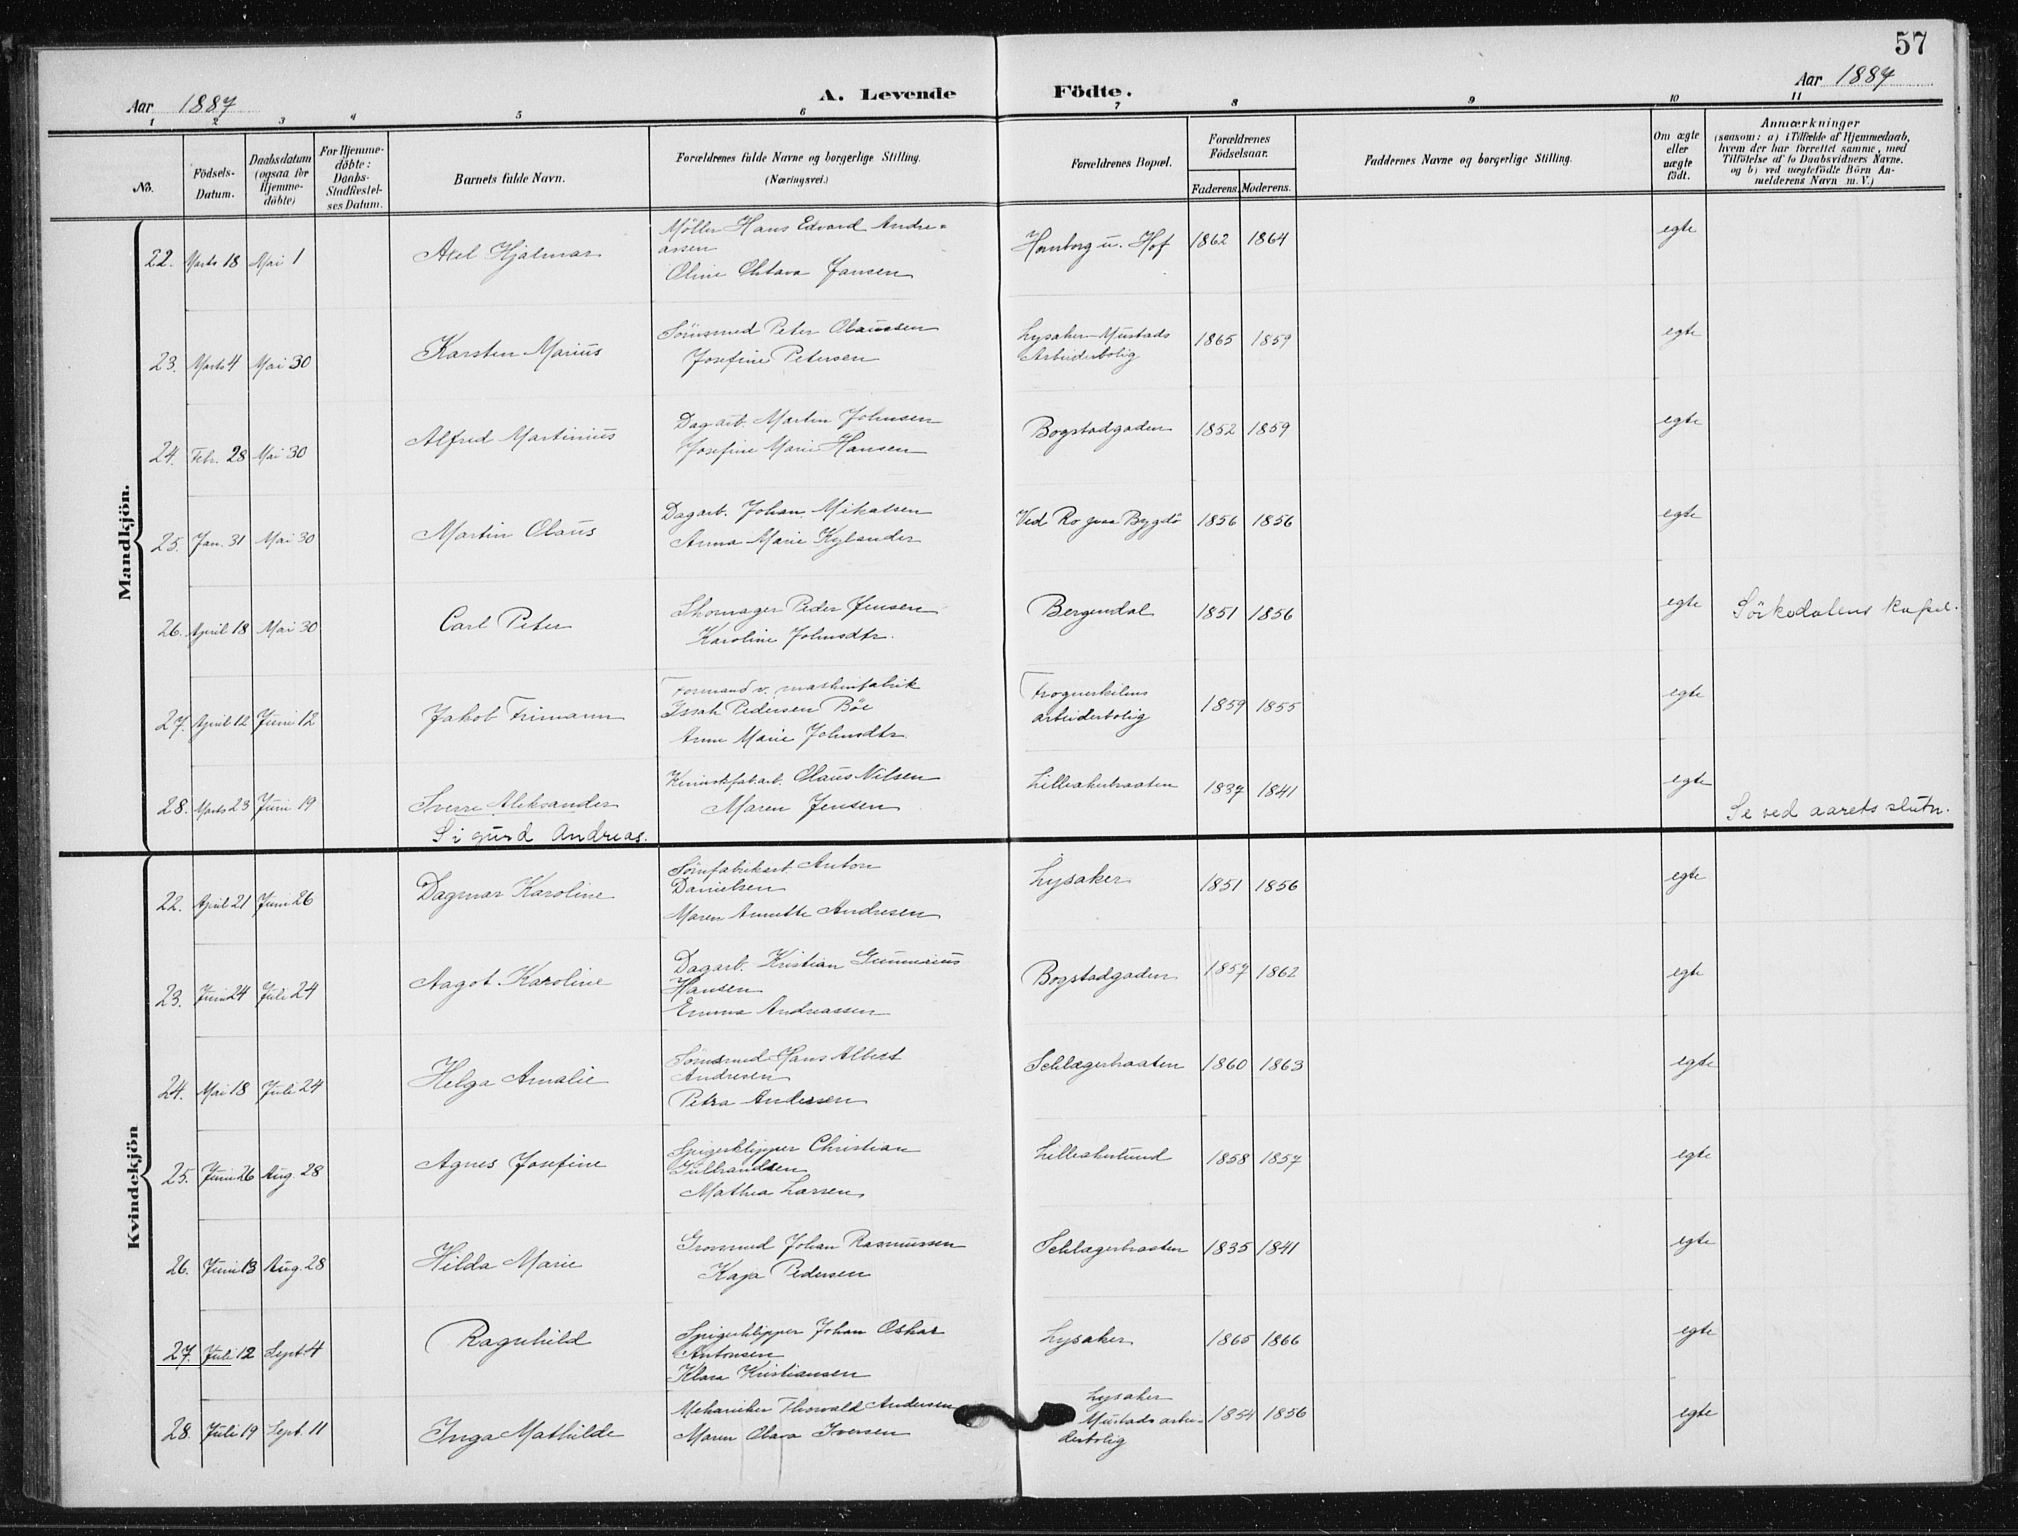 57
Aar 1887 A. Levende Födte. Aar 1887
1 2 3 4 5 6 7 8 9 10 11
No.
Födsels-Datum.
Daabsdatum (ogsaa for Hjemmedöbte)
For Hjemmedöbte: Daabs-Stadfæstelses Datum.
Barnets fulde Navn.
Forældrenes fulde Navne og borgerlige Stilling. (Næringsvei.)
Forældrenes Bopæl.
Forældrenes Födselsaar.
Faderens. Moderens.
Faddernes Navne og borgerlige Stilling.
Om ægte eller uægte födt.
Anmærkninger
(saasom: a) i Tilfælde af Hjemmedaab, hvem der har forrettet samme, med Tilföielse af to Daabsvidners Navne, og b) ved uægtefödte Börn Anmelderens Navn m. V.)
Mandkjön.
22. Marts 18 Mai 1 Axel Hjalmar Møller Hans Edvard Andreassen Oline Oktava Jansen Homborg u. Hof 1862 1864 egte
23. Marts 4 Mai 30 Karsten Marius Sömsmed Peter Olaussen Josefine Petersen Lysaker Mustads Arbeiderbolig 1865 1859 egte
24. Febr. 28 Mai 30 Alfred Martinius Dagarb. Martin Johnsen Josefine Marie Hansen Bogstadgaden 1852 1859 egte
25. Jan. 31 Mai 30 Martin Olaus Dagarb. Johan Mikalsen Anna Marie Kylander Ved Ro paa Bygdö 1856 1856 egte
26. April 18 Mai 30 Carl Peter Skomager Peder Jensen Karoline Johnsdtr. Bergendal 1851 1856 egte Sörkedalens kapel.
27. April 12 Juni 12 Jakob Frimann Formand v. maskinfabrik Issak Pedersen Böe Anne Marie Johnsdtr. Frognerkilens arbeiderbolig 1859 1855 egte
28. Marts 23 Juni 19 Sverre Aleksander Olaus Nilsen Maren Jensen 1837 1841 egte
Sigurd Andreas. Se ved aarets slutn.
Kvindekjön
22. April 21 Juni 26 Dagmar Karoline Sömfabrikarb. Anton Danielsen Maren Annette Andresen Lysaker 1851 1856 egte
23. Juni 24 Juli 24 Aagot Karoline Dagarb. Kristian Gunnerius Hansen Emma Andreassen Bogstadgaden 1857 1862 egte
24. Mai 18 Juli 24 Helga Amalie Sömsmed Hans Albert Andresen Petra Andersen 1860 1863 egte
25. Juni 26 Aug. 28 Agnes Josefine Spigerklipper Christian Gulbrandsen Mathea Larsen Lilleakerlund 1858 1857 egte
26. Juni 13 Aug. 28 Hilda Marie Grovsmed Johan Rasmussen Kaja Pedersen 1835 1841 egte
27. Juli 12 Sept. 4 Ragnhild Spigerklipper Johan Oskar Antonsen Klara Kristiansen Lysaker 1865 1866 egte
28. Juli 19 Sept. 11 Inga Mathilde Mekaniker Thorvald Andersen Maren Olava Iversen Lysaker Mustads arbeiderbolig 1854 1856 egte